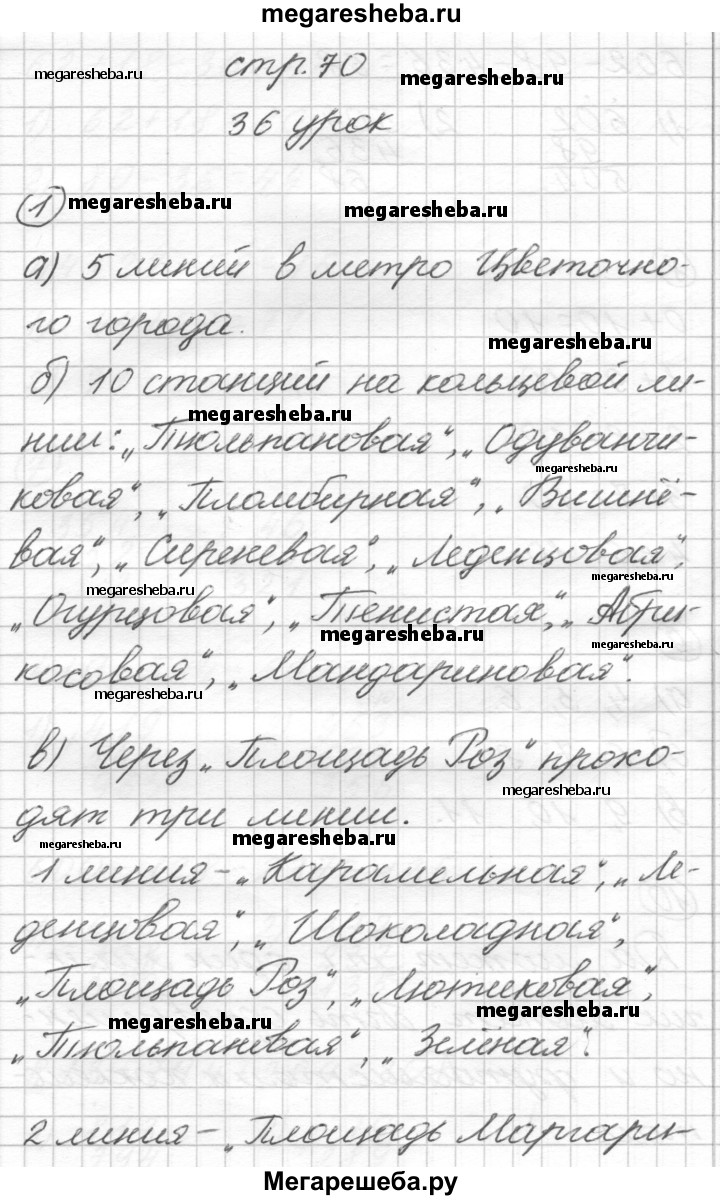 megaresheba.ru
стр. 70
megaresheba.ru
megaresheba.ru
36 урок
1
megaresheba.ru
megaresheba.ru
а) 5 линий в метро Цветочно-
го города.
megaresheba.ru
б) 10 станций на кольцевой ли-
megaresheba.ru
нии: „Тюльпановая“, „Одуванчи-
megaresheba.ru
ковая“, „Пломбирная“, „Вишнё-
вая“, „Сиреневая“, „Леденцовая“,
megaresheba.ru
megaresheba.ru
„Огурцовая“, „Тенистая“, „Абри-
megaresheba.ru
megaresheba.ru
косовая“, „Мандариновая“.
megaresheba.ru
в) Через „Площадь Роз“ прохо-
megaresheba.ru
дят три линии.
megaresheba.ru
megaresheba.ru
1 линия – „Карамельная“, „Ле-
денцовая“, „Шоколадная“,
„Площадь Роз“, „Лютиковая“,
megaresheba.ru
megaresheba.ru
„Тюльпановая“, „Зелёная“.
2 линия – „Площадь Маргари-
Мегарешеба.ру